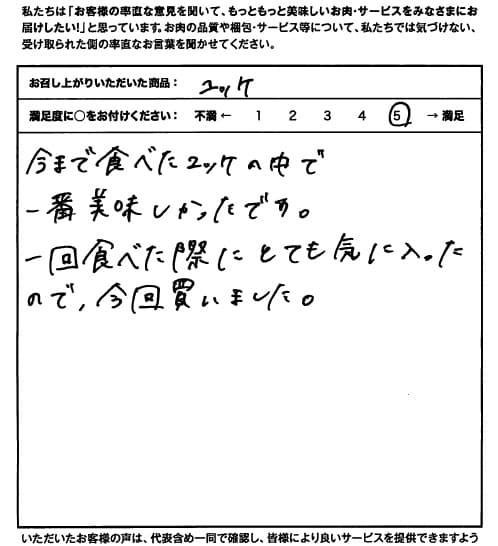 私たちは「お客様の率直な意見を聞いて、もっともっと美味しいお肉・サービスをみなさまにお
届けしたい!」と思っています。お肉の品質や梱包・サービス等について、私たちでは気づけない、
受け取られた側の率直なお言葉を聞かせてください。
お召し上がりいただいた商品： ユッケ
満足度に○をお付けください： 不満 ← 1 2 3 4 5 → 満足
今まで食べたユッケの中で
一番美味しかったです。
一回食べた際にとても気に入った
ので、今回買いました。
いただいたお客様の声は、代表含め一同で確認し、皆様により良いサービスを提供できますよう